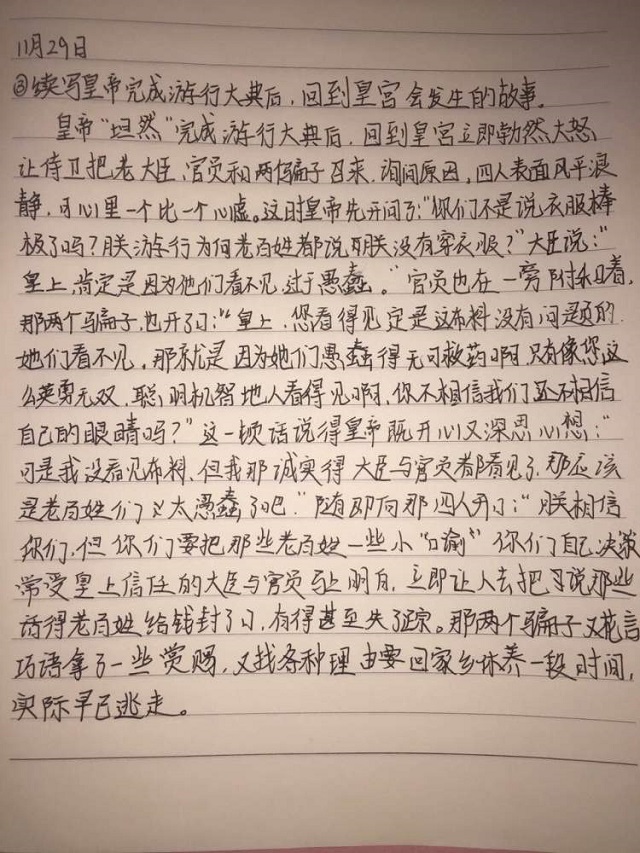 11月29日
③续写皇帝完成游行大典后，回到皇宫会发生的故事。
皇帝“坦然”完成游行大典后，回到皇宫立即勃然大怒，
让侍卫把老大臣、官员和两个骗子召来，询问原因，四人表面风平浪
静，可心里一个比一个心虚。这时皇帝先开问了：“你们不是说衣服棒
极了吗？朕游行为何老百姓都说朕没有穿衣服？”大臣说：“
皇上，肯定是因为他们看不见，过于愚蠢。”官员也在一旁附和着，
那两个骗子，也开了口：“皇上，您看得见定是这布料没有问题的，
她们看不见，那就是因为她们愚蠢得无可救药啊，只有像您这
么英勇无双，聪明机智地人看得见啊，你不相信我们还不相信
自己的眼睛吗？”这一顿话说得皇帝既开心又深思心想：“
可是我没看见布料，但我那诚实得大臣与官员都看见了，那应该
是老百姓们太愚蠢了吧。”随即向那四人开口：“朕相信
你们，但你们要把那些老百姓一些小“口谕”你们自己决策
常受皇上信任的大臣与官员马上明白，立即让人去把习说那些
话得老百姓给钱封了口，有得甚至失了踪。那两个骗子又花言
巧语拿了一些赏赐，又找各种理由要回家乡休养一段时间，
实际早已逃走。